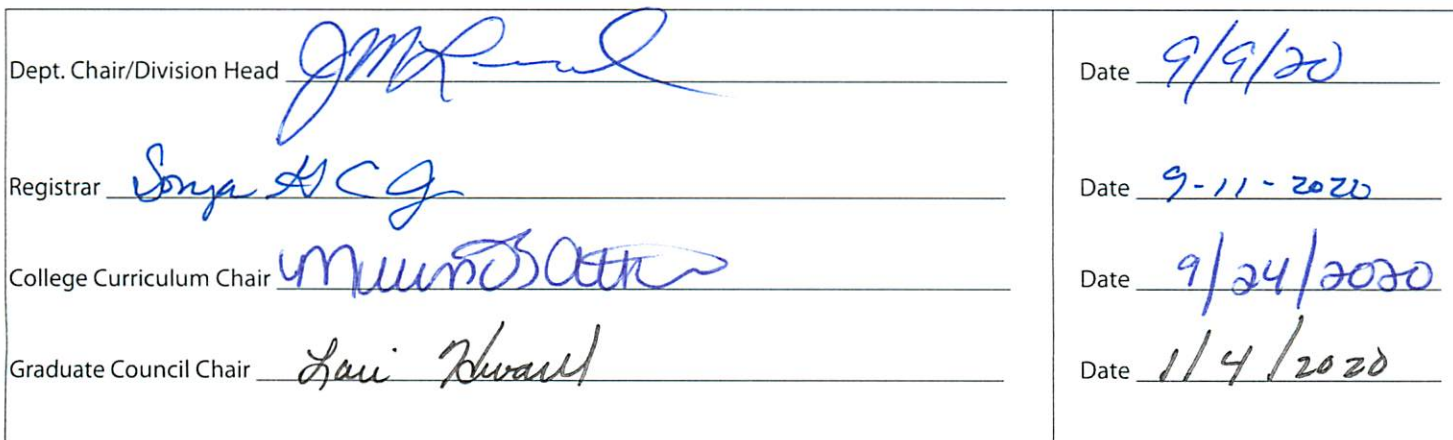 Dept. Chair/Division Head Date 9/9/20
Registrar Sonya Date 9-11-2020
College Curriculum Chair Date 9/24/2020
Graduate Council Chair Lori Howard Date 1/4/2020